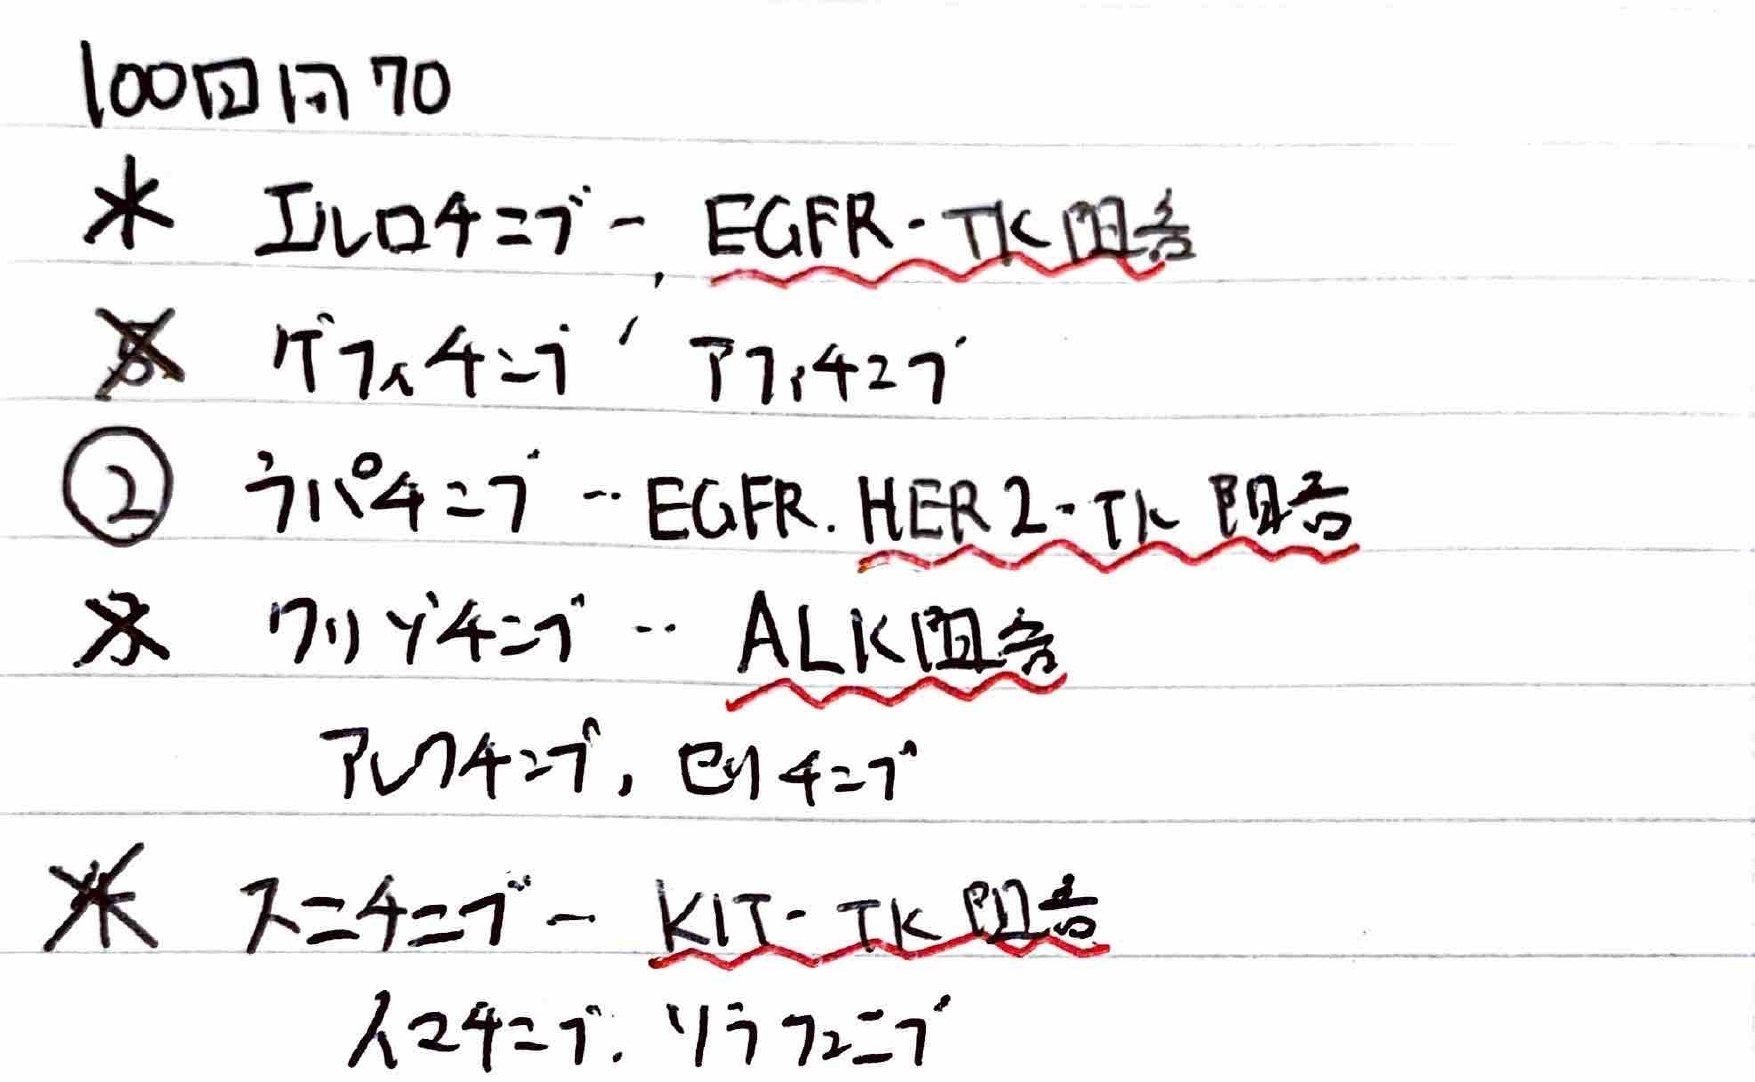 100回問70
エルロチニブ - EGFR・TK阻害
ゲフィチニブ, アファチニブ
② ラパチニブ ‥ EGFR. HER2・TK 阻害
クリゾチニブ ‥ ALK阻害
アレクチニブ, セリチニブ
スニチニブ - KIT- TK 阻害
イマチニブ. ソラフェニブ